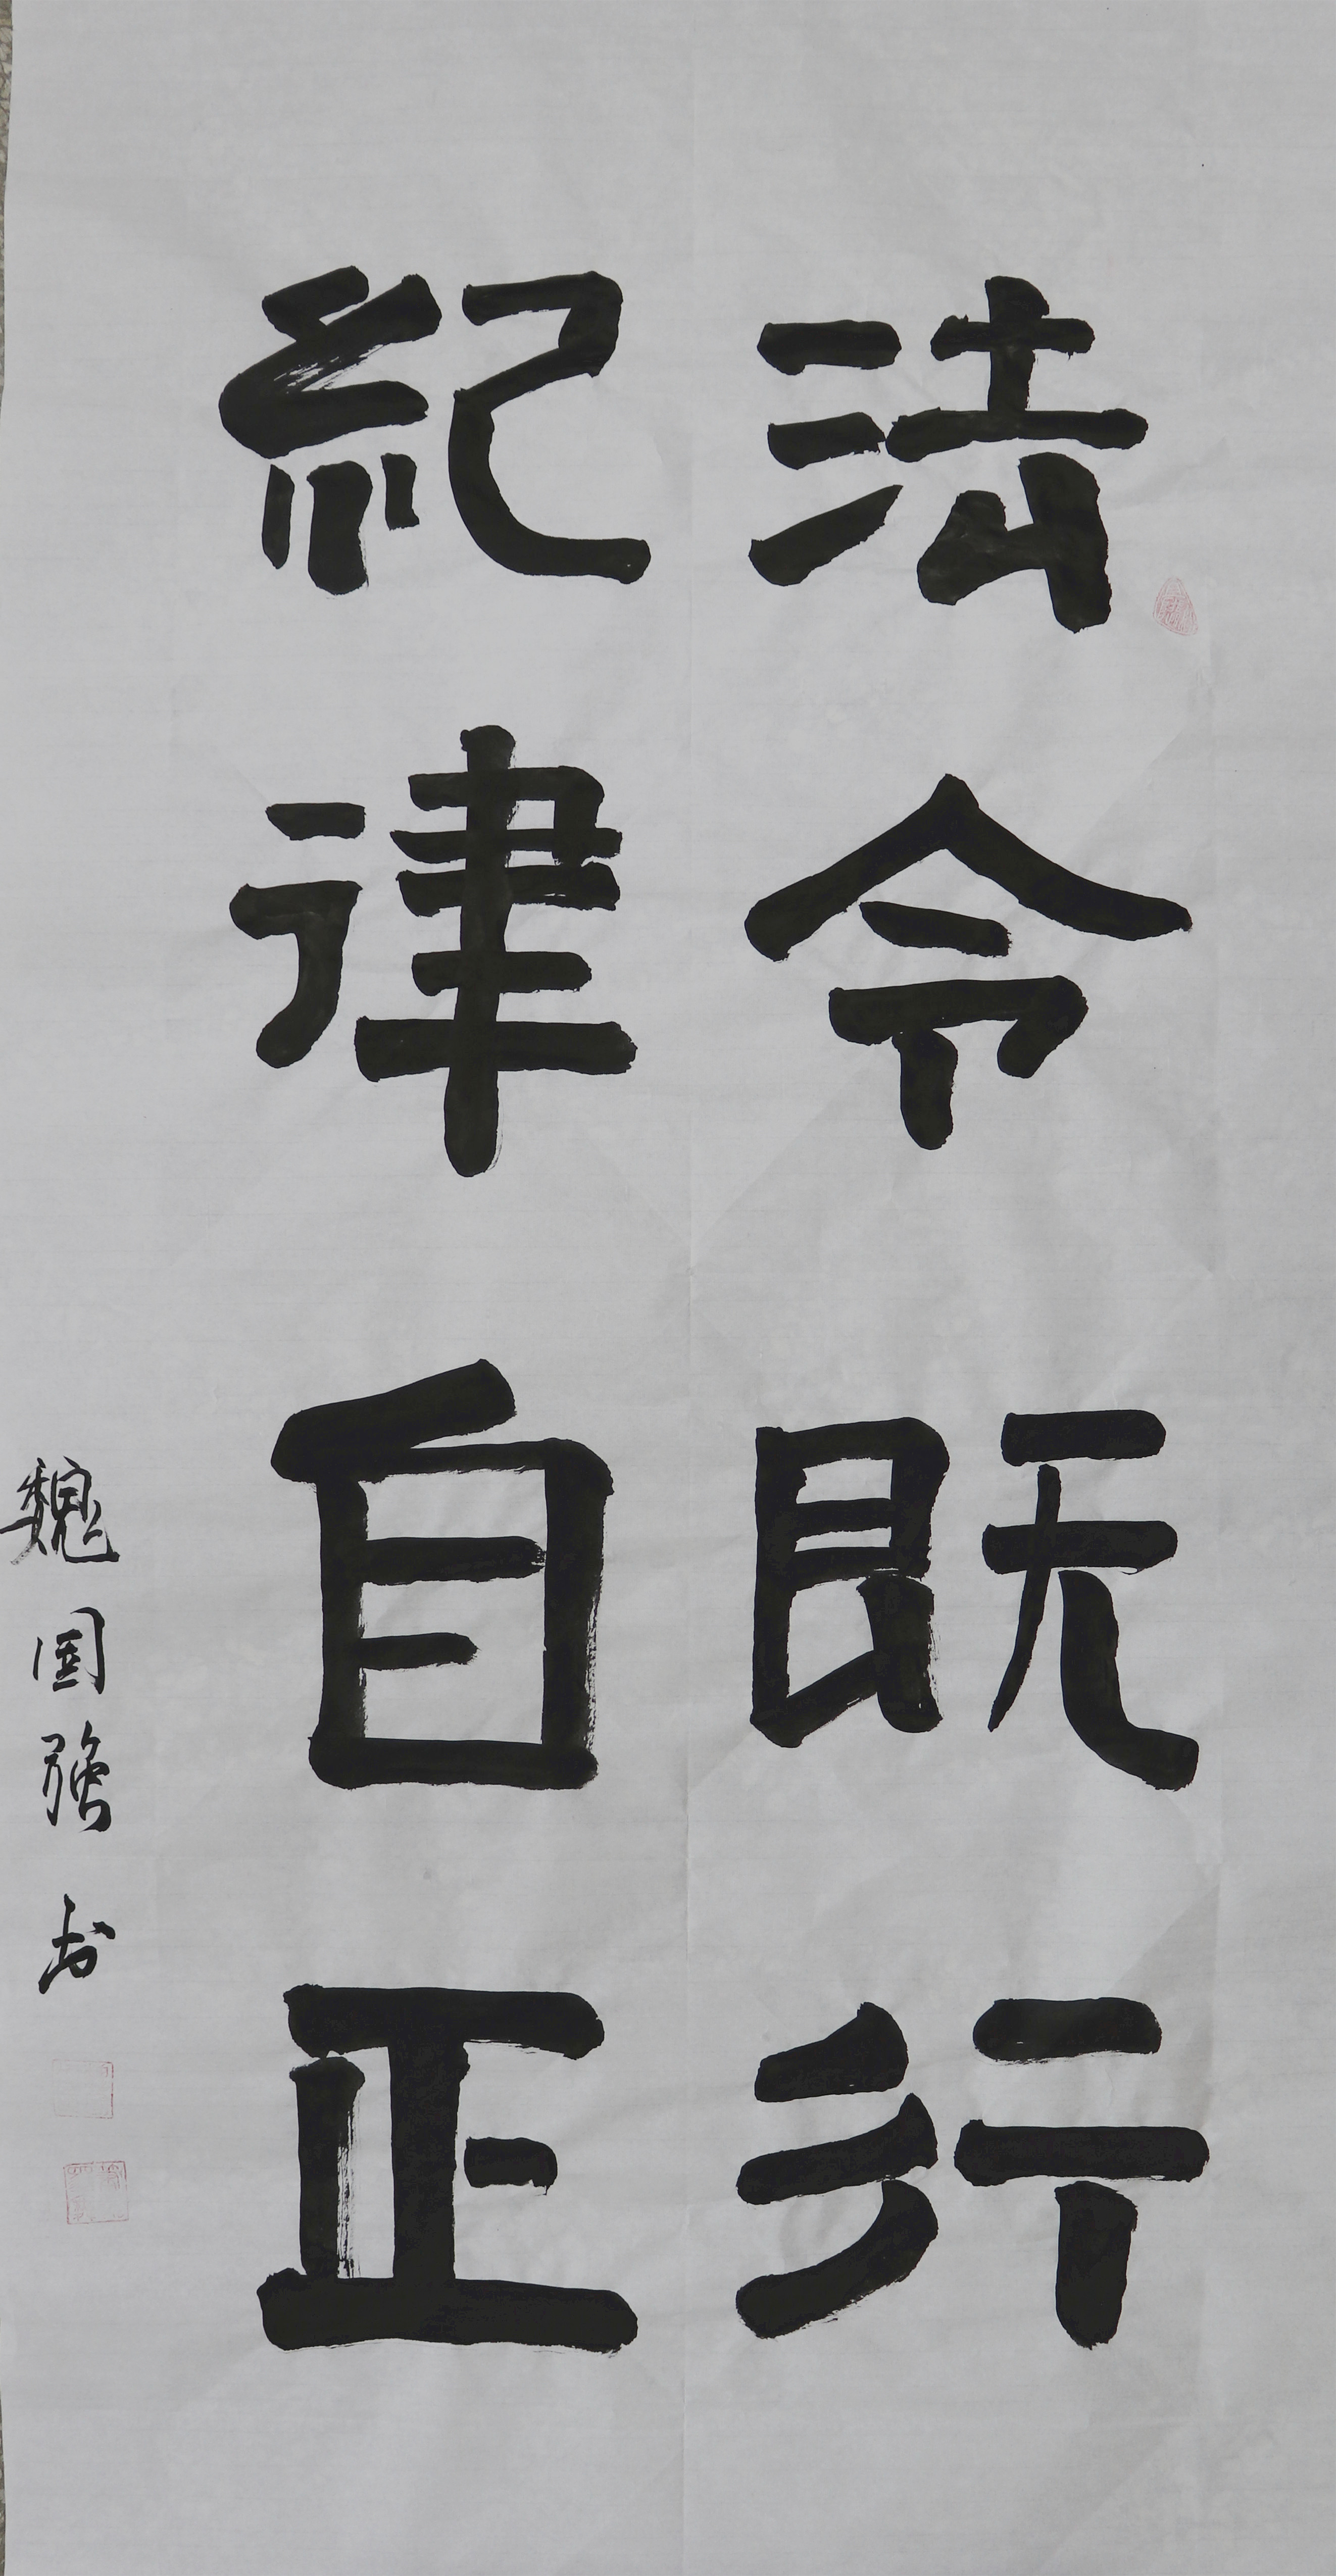 法令既行
紀律自正
魏国强书